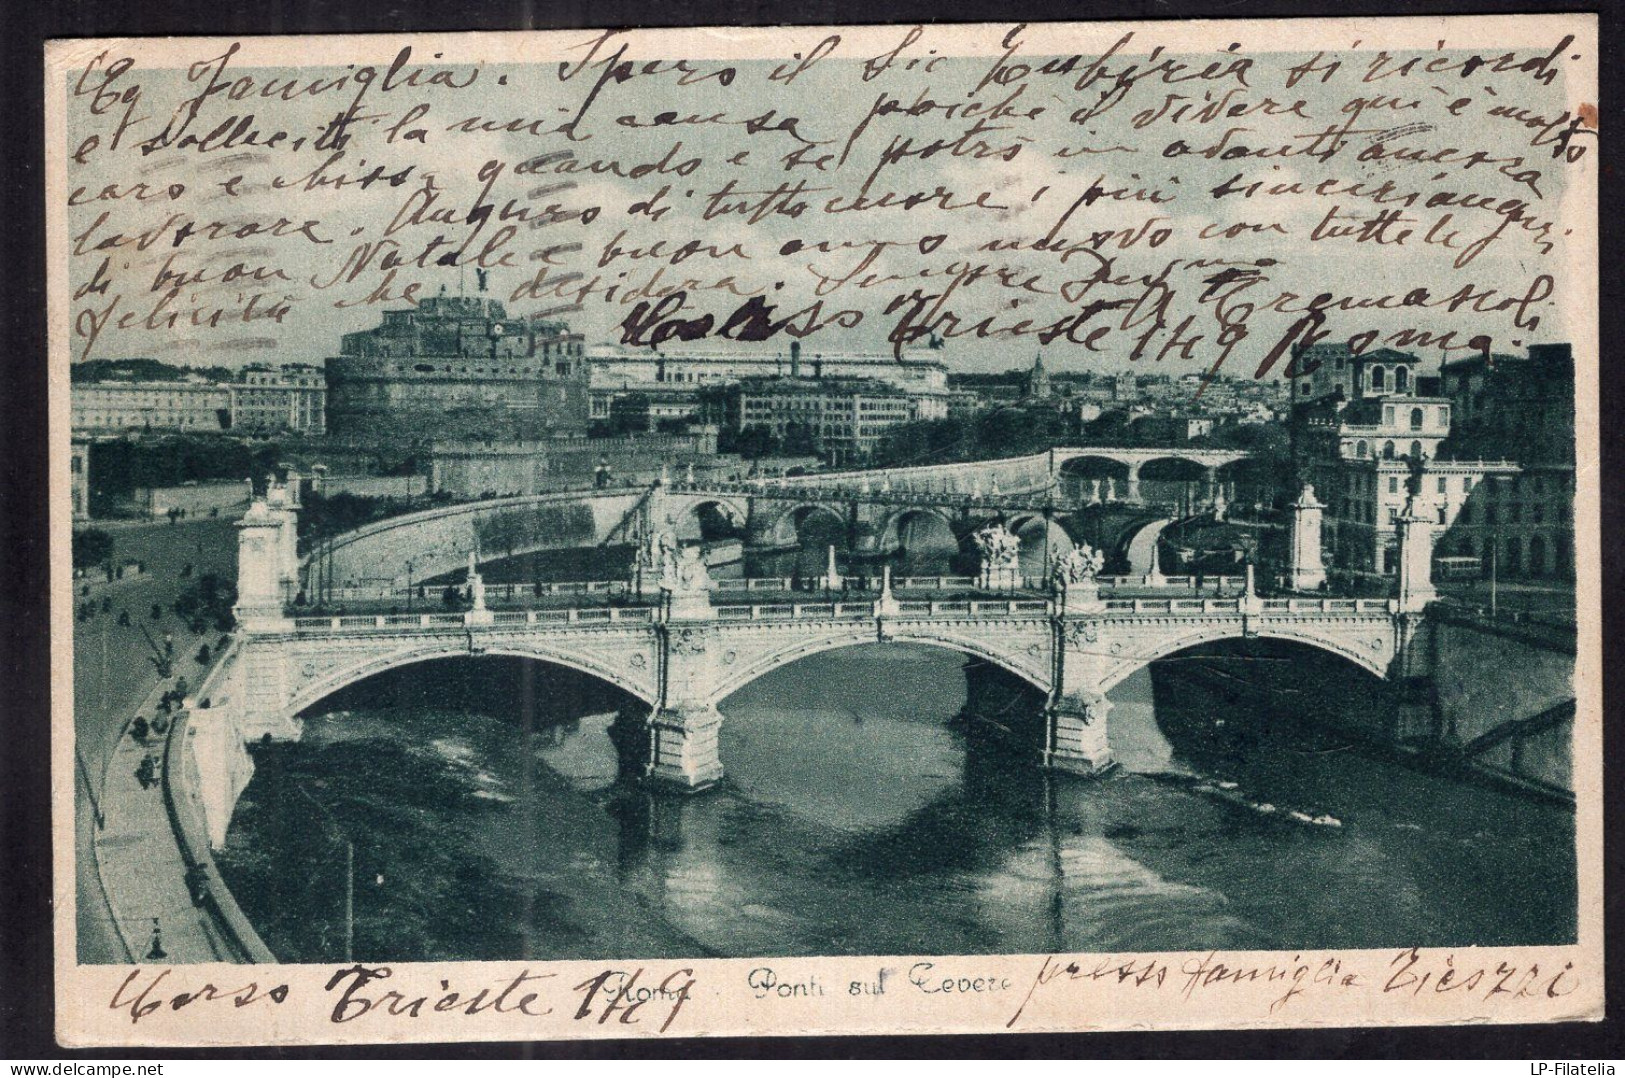 Eg Famiglia. Spero il Sic Eusebio si ricordi
e solleciti la mia causa poichè il vivere quì è molto
caro e chissa quando e se potrò in avanti ancora
lavorare. Auguro di tutto cuore i più sinceri auguri
di buon Natale e buon anno nuovo con tutte le
felicità che desidera. Sempre
Corso Trieste 149 Roma.
Roma - Ponti sul Tevere
Corso Trieste 149 presso famiglia
LP-Filatelia